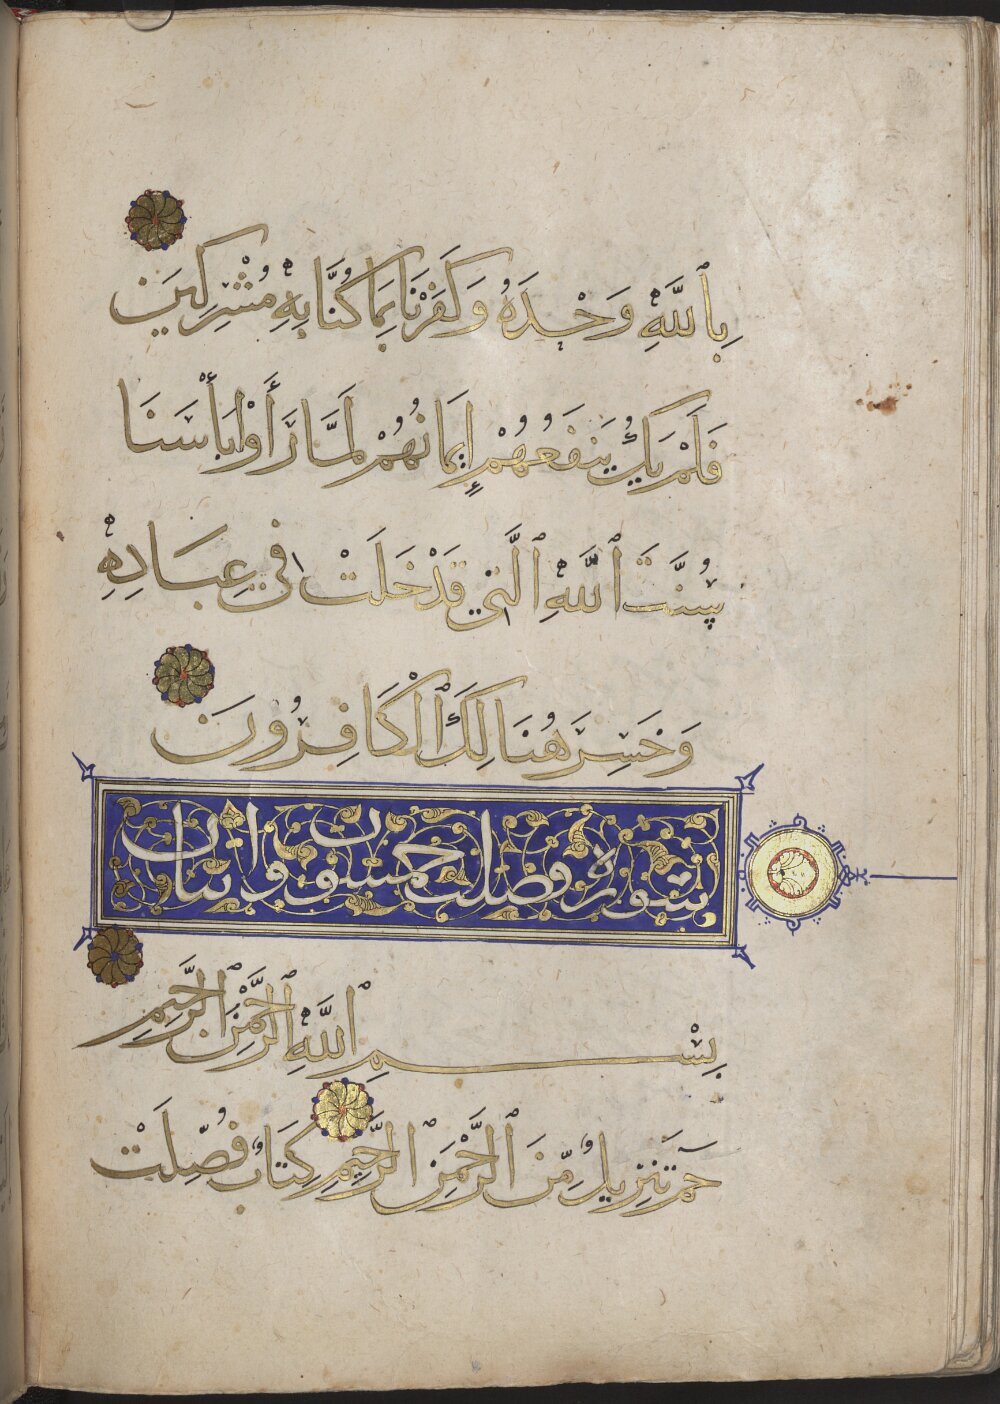 بِٱللَّهِ وَحْدَهُ وَكَفَرْنَا بِمَا كُنَّا بِهِ مُشْرِكِينَ
فَلَمْ يَكُ يَنفَعُهُمْ إِيمَانُهُمْ لَمَّا رَأَوْا بَأْسَنَا
سُنَّتَ ٱللَّهِ ٱلَّتِي قَدْ خَلَتْ فِي عِبَادِهِ
وَخَسِرَ هُنَالِكَ ٱلْكَافِرُونَ
سورة فصلت خمسون واثنتان
بِسْمِ ٱللَّهِ ٱلرَّحْمَٰنِ ٱلرَّحِيمِ
حٓمٓ تَنزِيلٌ مِّنَ ٱلرَّحْمَٰنِ ٱلرَّحِيمِ كِتَابٌ فُصِّلَتْ